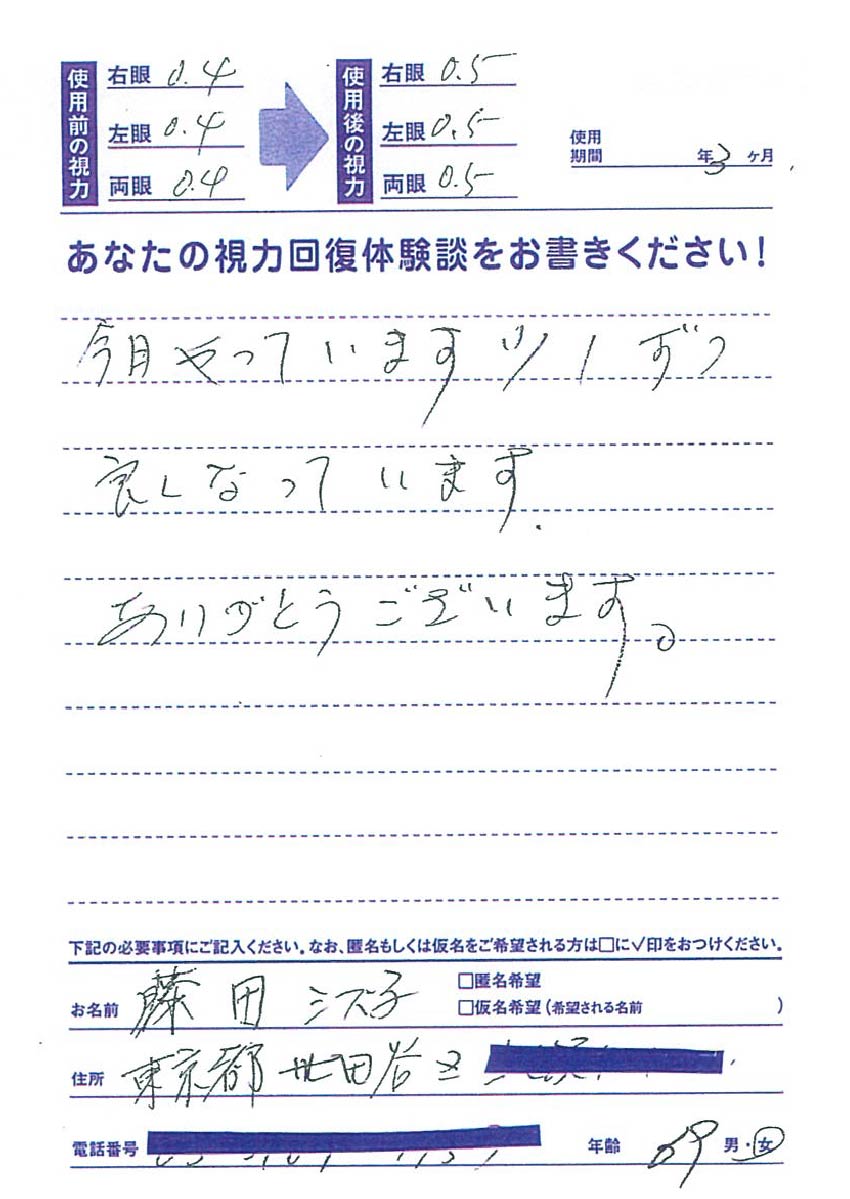 使用前の視力
右眼 0.4
左眼 0.4
両眼 0.4
使用後の視力
右眼 0.5
左眼 0.5
両眼 0.5
使用期間 年3ヶ月
あなたの視力回復体験談をお書きください！
今月やっています 少しずつ
良くなっています.
ありがとうございます。
下記の必要事項にご記入ください。なお、匿名もしくは仮名をご希望される方は□に✓印をおつけください。
お名前 藤田 シズ子
□匿名希望
□仮名希望（希望される名前 ）
住所 東京都 世田谷区
電話番号
年齢 69 男・女